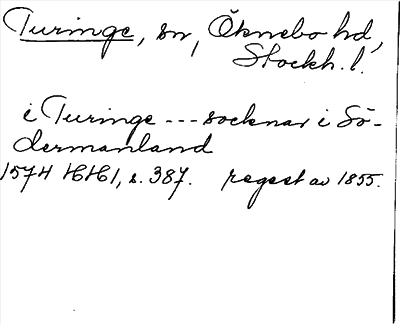 Turinge, sn, Öknebo hd,
Stockh. l.
i Turinge --- socknar i Sö-
dermanland
1574 HH1, s. 387. regest av 1855.